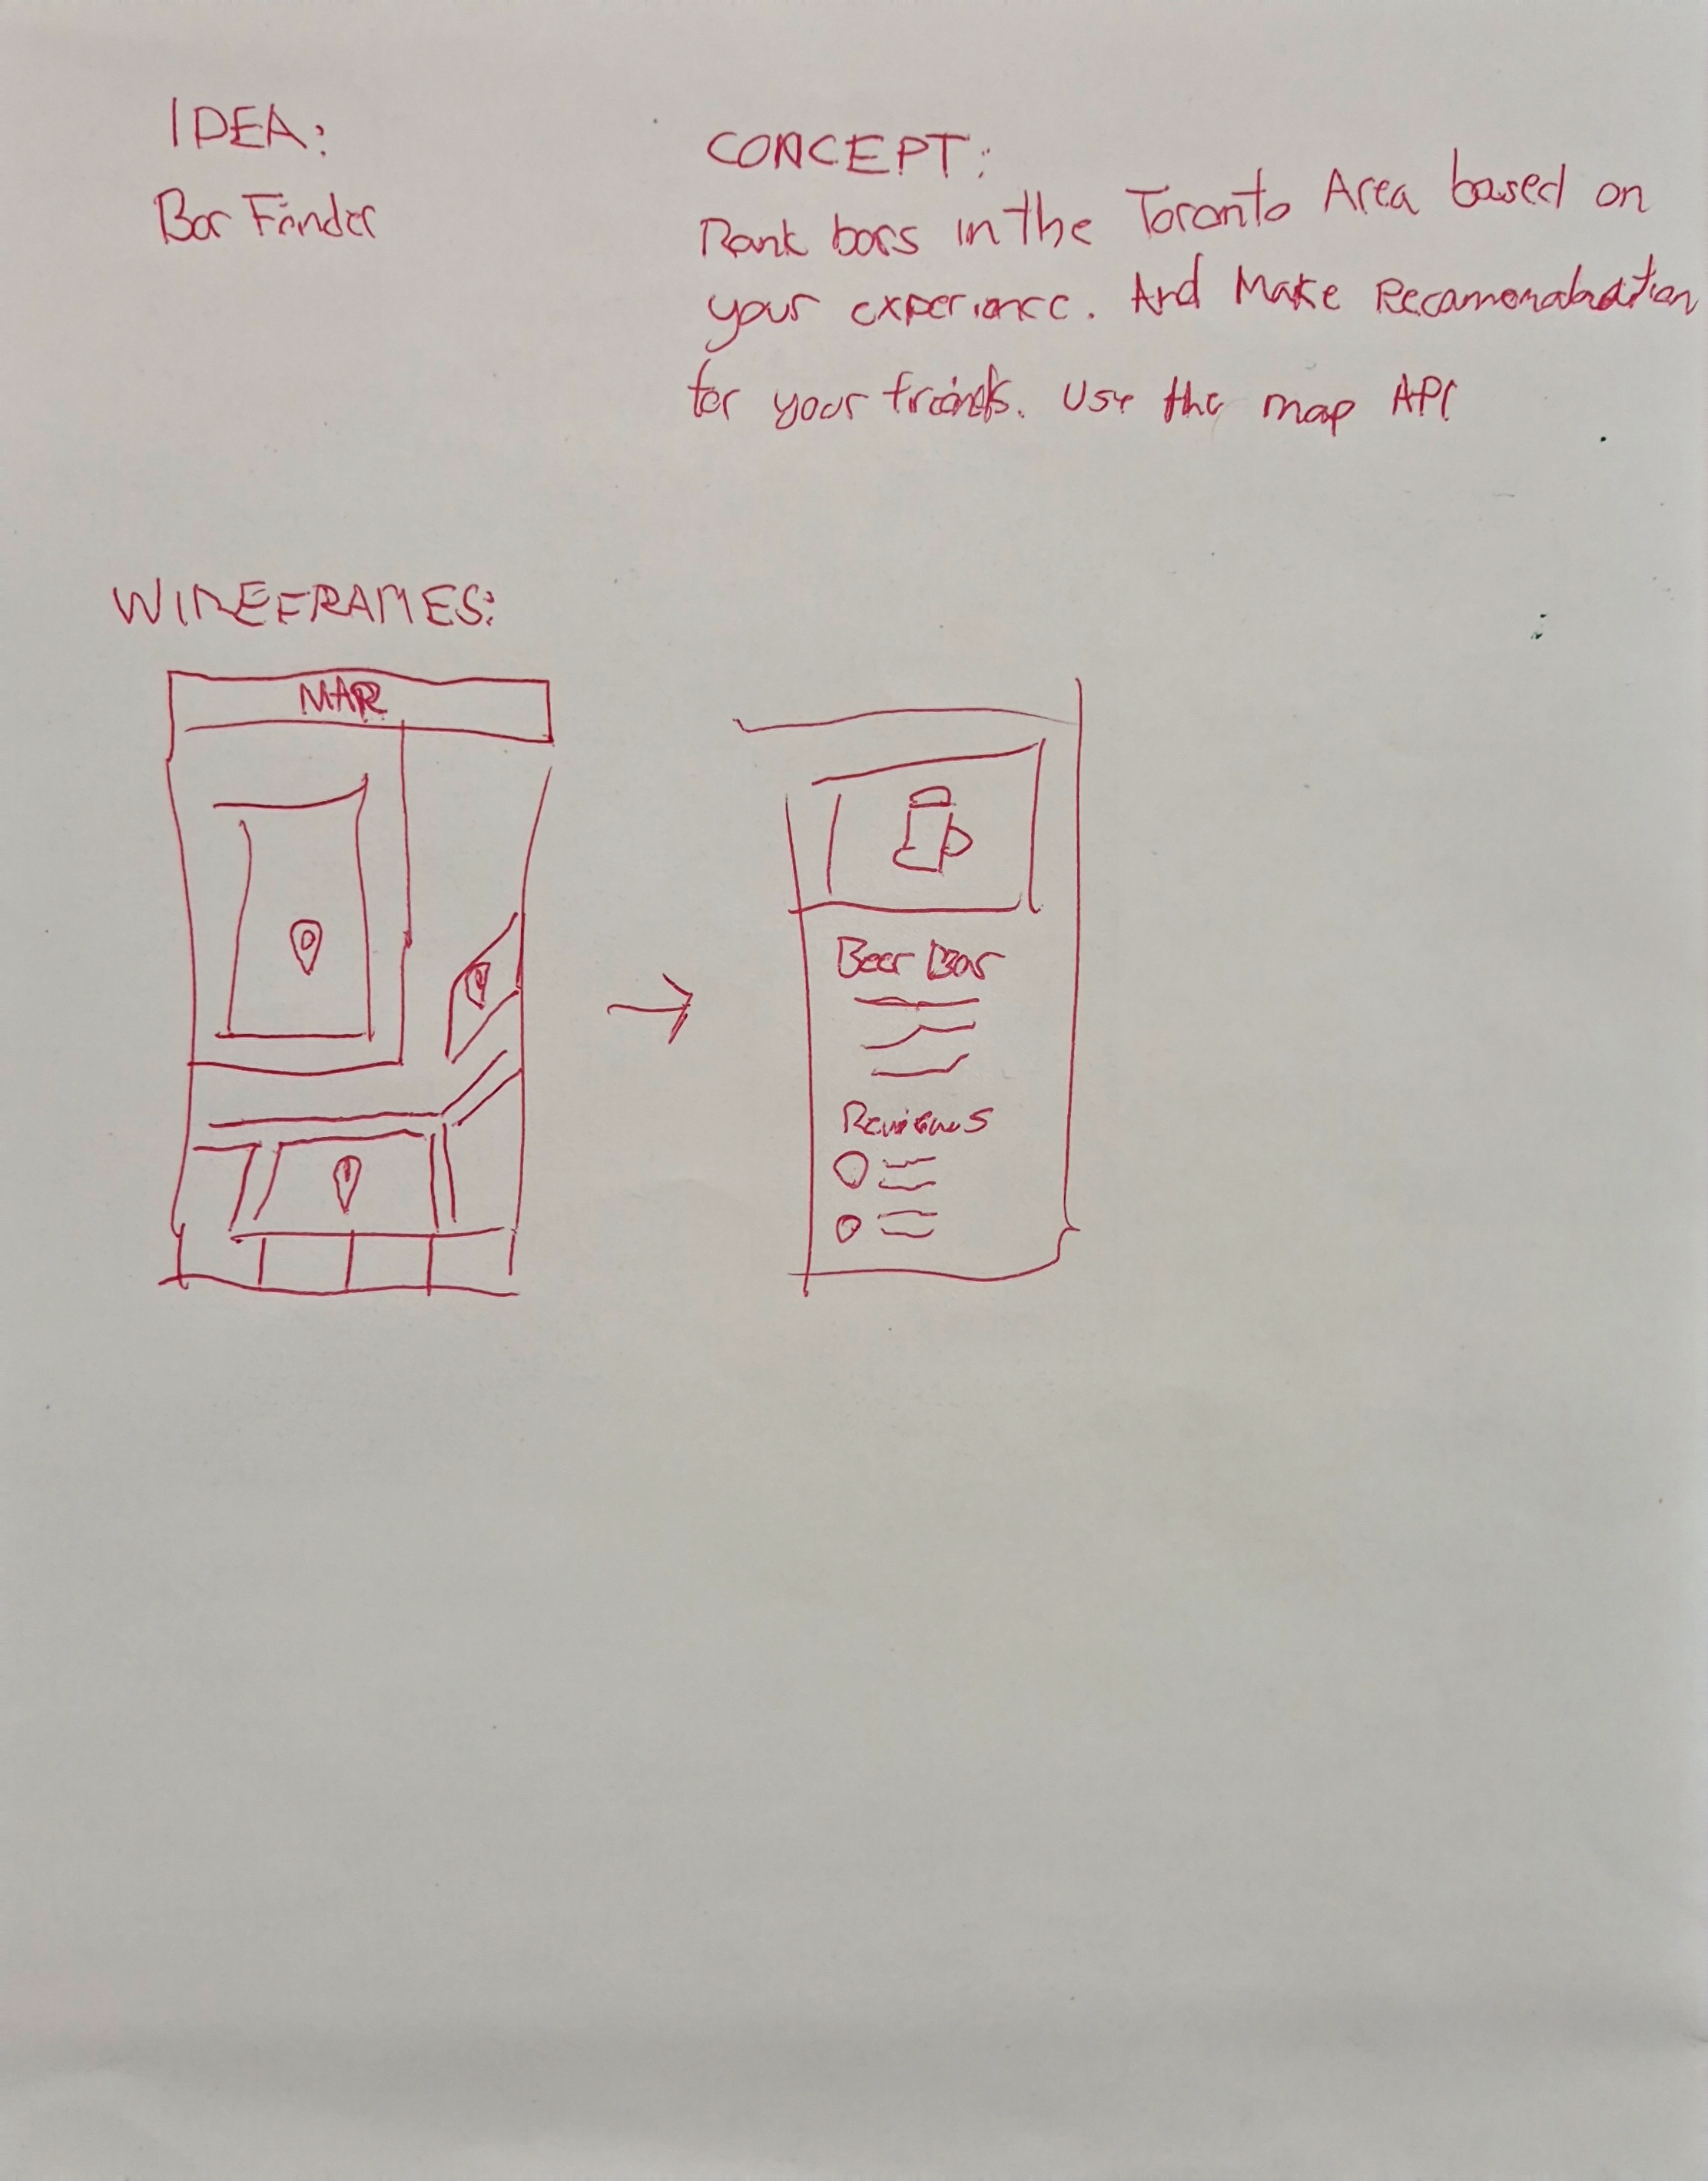 IDEA:
Bar Finder
CONCEPT:
Rank bars in the Toronto Area based on
your experience. And Make Recommendation
for your friends. Use the map API
WIREFRAMES:
MAP
Beer Bar
Reviews